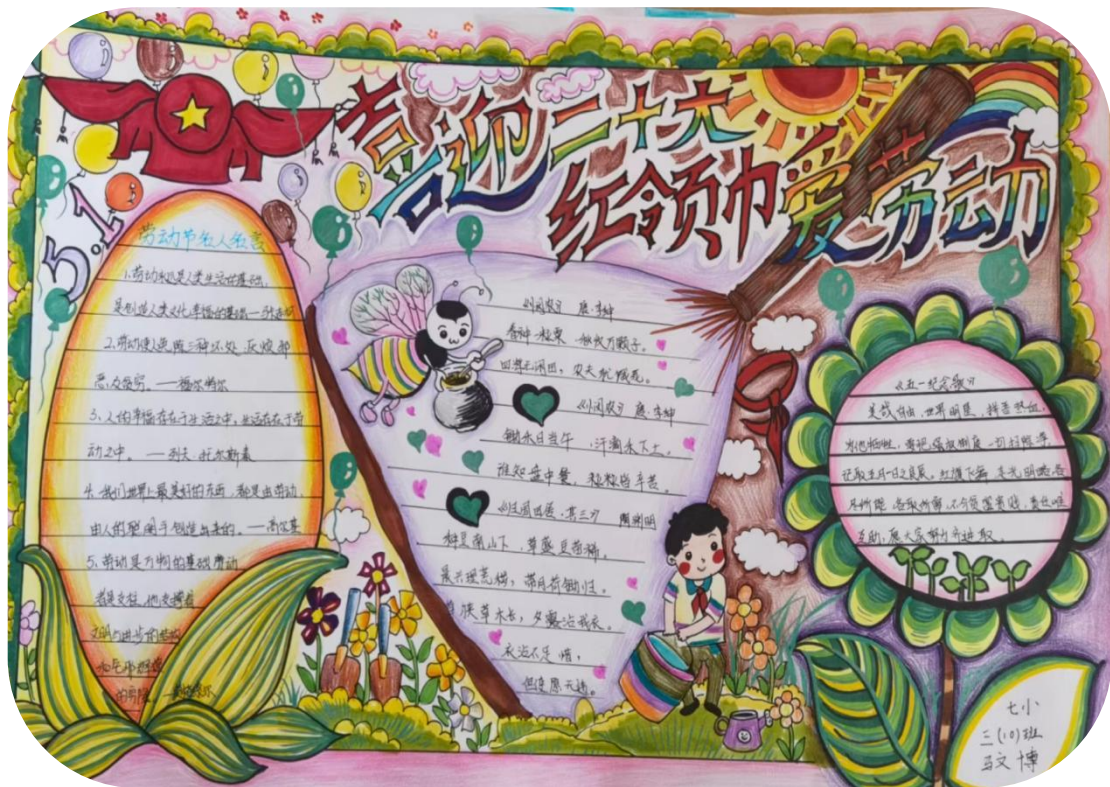 喜迎二十大
红领巾爱劳动
5.1
劳动节名人名言
1.劳动永远是人类生活的基础,
是创造人类文化幸福的基础
2.劳动使人远离三种坏处
恶及贫穷。
3、人的幸福存在于生活之中,生活存在于劳
动之中。——列夫·托尔斯泰
4.我们世界上最美好的东西,都是由劳动、
由人的聪明手创造出来的。——高尔基
5.劳动是万物的基础劳动
者是支柱,他支撑着
文明与进步的
《悯农》 唐·李绅
春种一粒粟 秋收万颗子。
四海无闲田,农夫犹饿死。
《悯农》 唐·李绅
锄禾日当午 ,汗滴禾下土。
谁知盘中餐,粒粒皆辛苦。
《归园田居·其三》 陶渊明
种豆南山下,草盛豆苗稀。
晨兴理荒秽,带月荷锄归。
道狭草木长,夕露沾我衣。
衣沾不足惜,
但使愿无违。
《五一纪念歌》
美哉自由,世界明星,拼吾热血,
为他牺牲,要把强权制度一切扫除净,
记取五月一日之良辰。红旗飞舞,走光明路,各
尽所能,各取所需,不分贫富贵贱,责任唯
互助,愿大家努力齐进取。
七小
三(10)班
文博